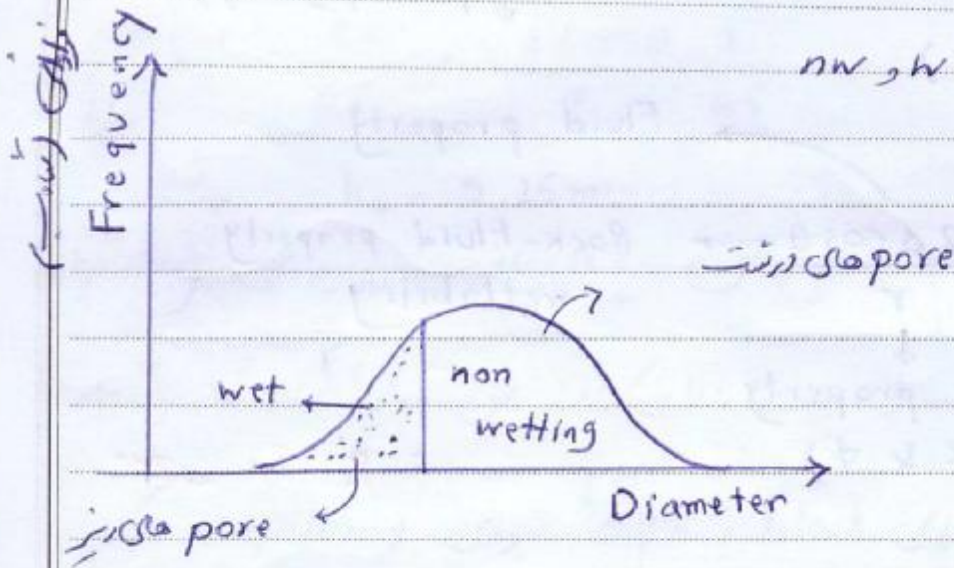 nw , w
Frequency
pore های درشت
wet
non
wetting
Diameter
pore های ریز